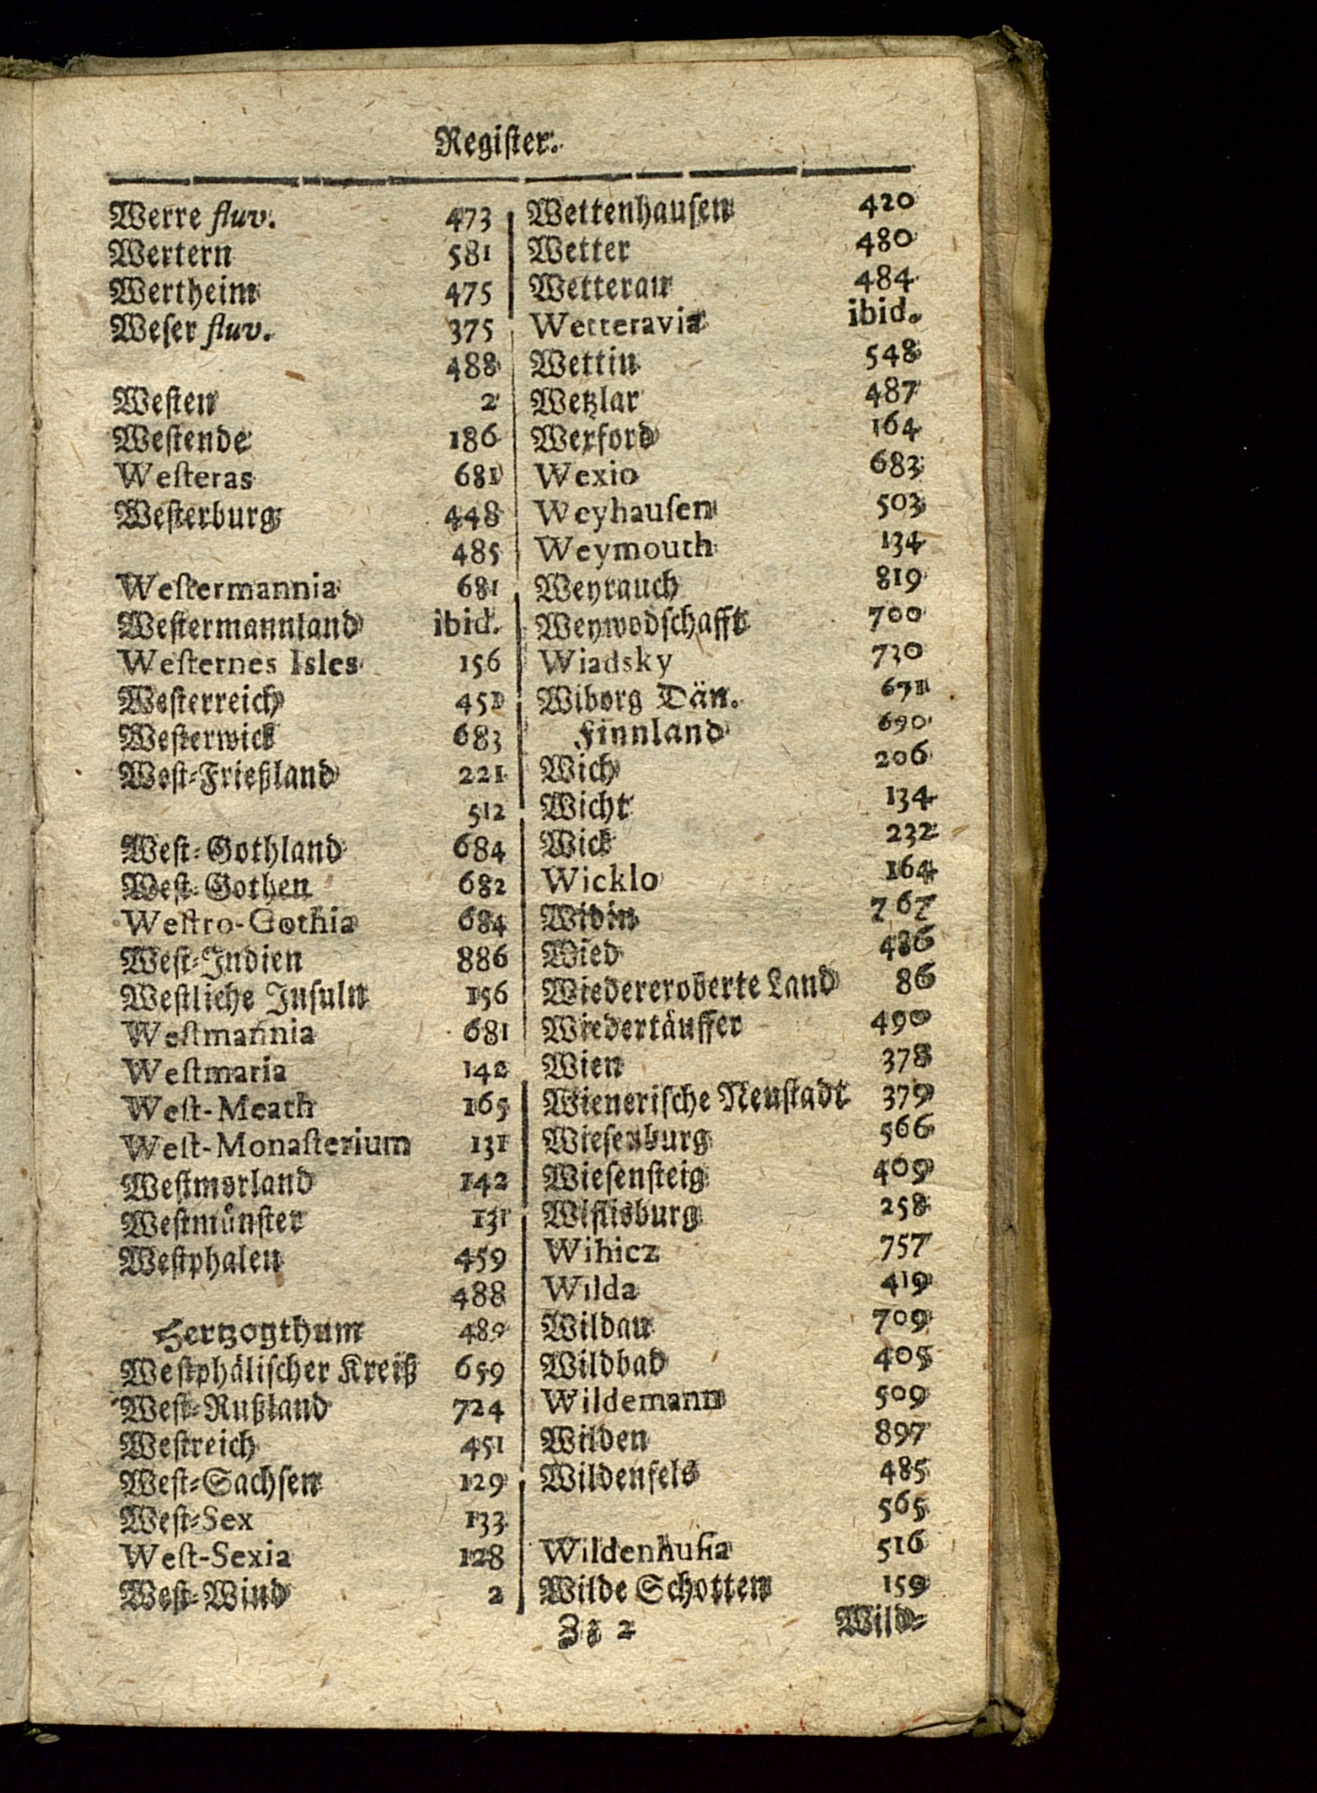 Register.
Werre fluv. 473
Wertern 581
Wertheim 475
Weſer fluv. 375
488
Weſten 2
Weſtende 186
Weſteras 681
Weſterburg 448
485
Weſtermannia 681
Weſtermannland ibid.
Weſternes Isles 156
Weſterreich 451
Weſterwick 683
Weſt-Frießland 221
512
Weſt-Gothland 684
Weſt-Gothen 682
Weſtro-Gothia 684
Weſt-Indien 886
Weſtliche Inſuln 156
Weſtmannia 681
Weſtmaria 142
Weſt-Meath 165
Weſt-Monaſterium 131
Weſtmorland 142
Weſtmünſter 131
Weſtphalen 459
488
Hertzogthum 489
Weſtphäliſcher Kreiß 659
Weſt-Rußland 724
Weſtreich 451
Weſt-Sachſen 129
Weſt-Sex 133
Weſt-Sexia 128
Weſt-Wind 2
Wettenhauſen 420
Wetter 480
Wetterau 484
Wetteravia ibid.
Wettin 548
Wetzlar 487
Wexford 164
Wexio 683
Weyhauſen 503
Weymouth 134
Weyrauch 819
Weywodſchafft 700
Wiadsky 730
Wiborg Dän. 671
Finnland 690
Wich 206
Wicht 134
Wick 232
Wicklo 164
Widin 767
Wied 486
Wiedereroberte Land 86
Wiedertäuffer 490
Wien 378
Wieneriſche Neuſtadt 379
Wieſenburg 566
Wieſenſteig 409
Wiflisburg 258
Wihicz 757
Wilda 419
Wildau 709
Wildbad 405
Wildemann 509
Wilden 897
Wildenfels 485
565
Wildenhuſia 516
Wilde Schotten 159
Zz 2 Wild-